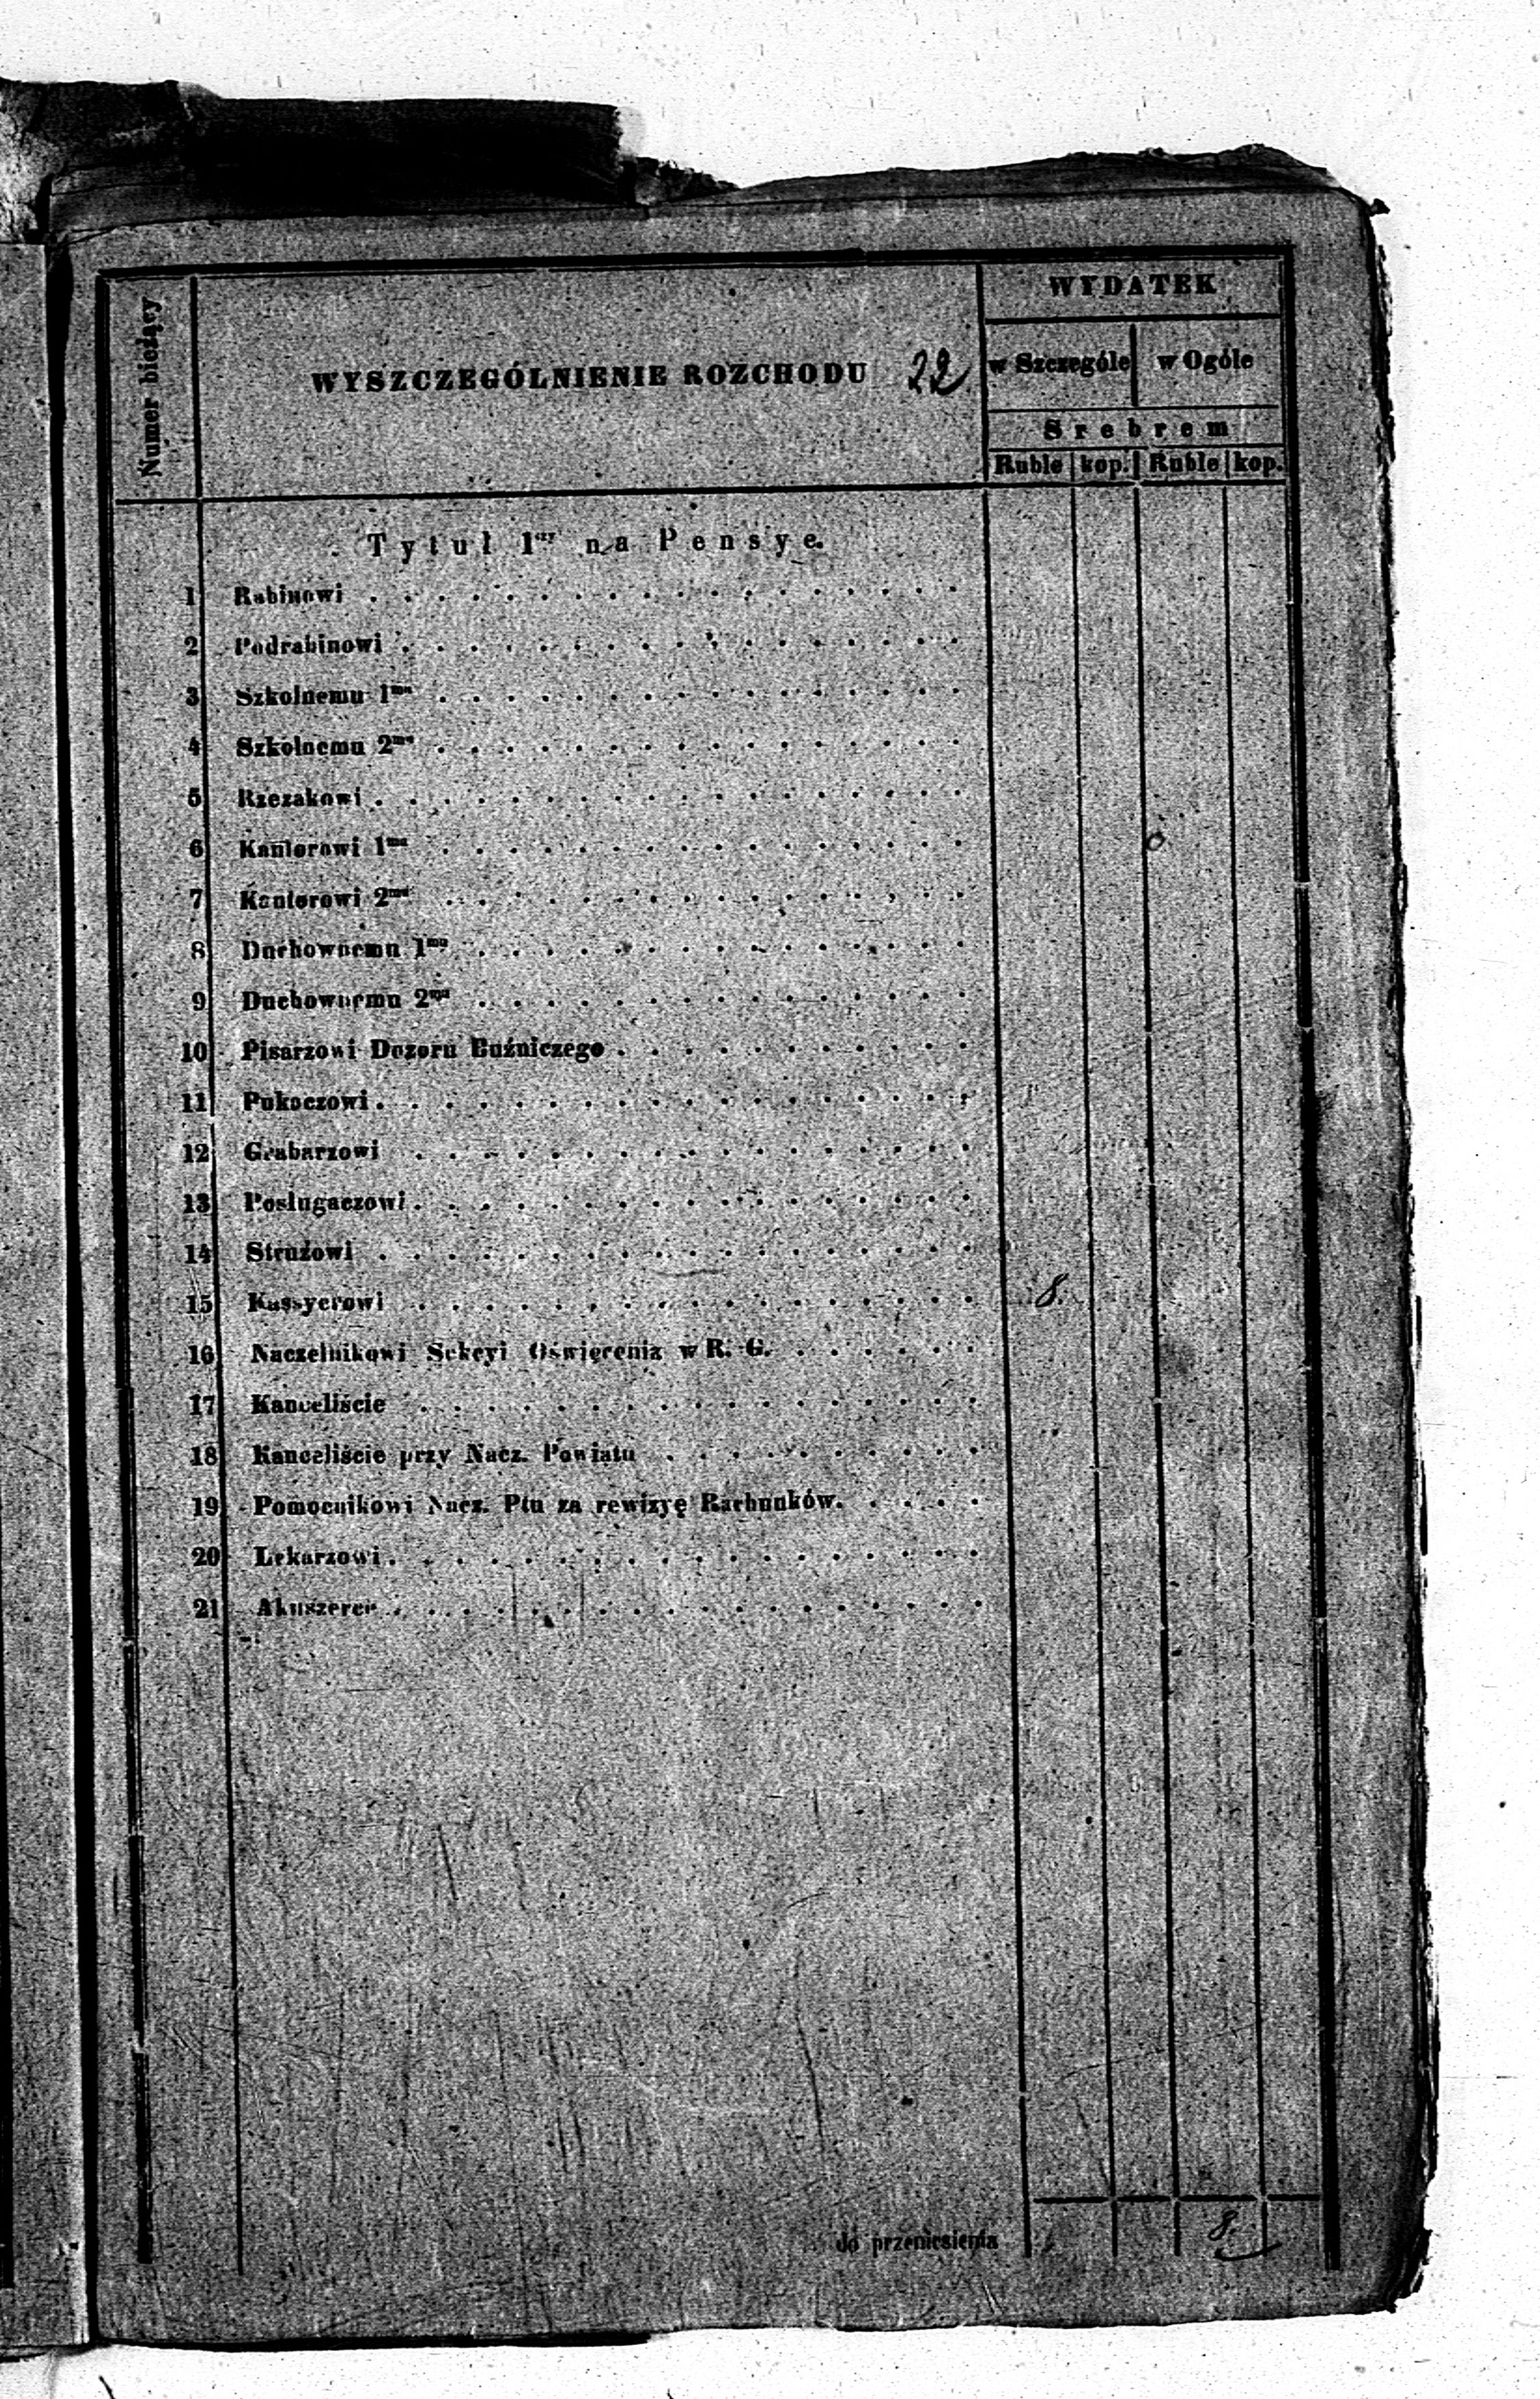 Numer bieżący
WYSZCZEGÓLNIENIE ROZCHODU 22
WYDATEK
w Szczególe w Ogóle
Srebrem
Ruble kop. Ruble kop.
Tytuł 1szy na Pensye.
1 Rabinowi
2 Podrabinowi
3 Szkolnemu 1mu
4 Szkolnemu 2mu
5 Rzezakowi
6 Kantorowi 1mu
7 Kantorowi 2mu
8 Duchownemu 1mu
9 Duchownemu 2mu
10 Pisarzowi Dozoru Bużniczego
11 Pukaczowi
12 Grabarzowi
13 Posługaczowi
14 Strużowi
15 Kassyerowi 8.
16 Naczelnikowi Sekcyi Oświecenia w R. G.
17 Kanceliście
18 Kanceliście przy Nacz. Powiatu
19 Pomocnikowi Nacz. Ptu za rewizyę Rachunków.
20 Lekarzowi
21 Akuszerce
do przeniesienia 8.